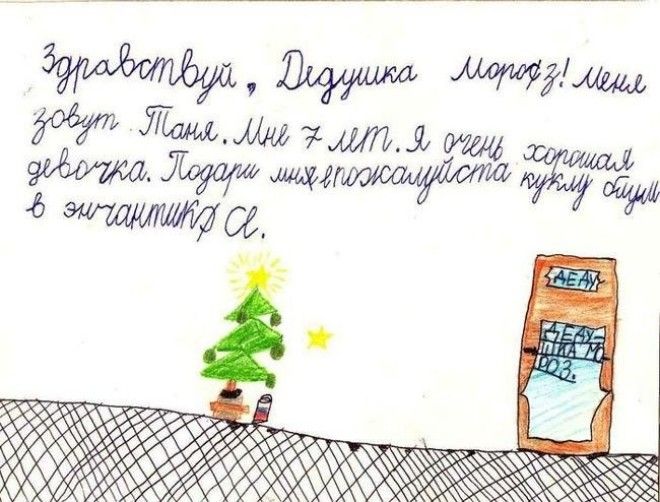 Здравствуй, Дедушка Мороз! Меня
зовут Таня. Мне 7 лет. Я очень хорошая
девочка. Подари мня пожалуйста куклу блум
в энчантикс.
ДЕДУ
ДЕДУ-
ШКА МО
РОЗ.